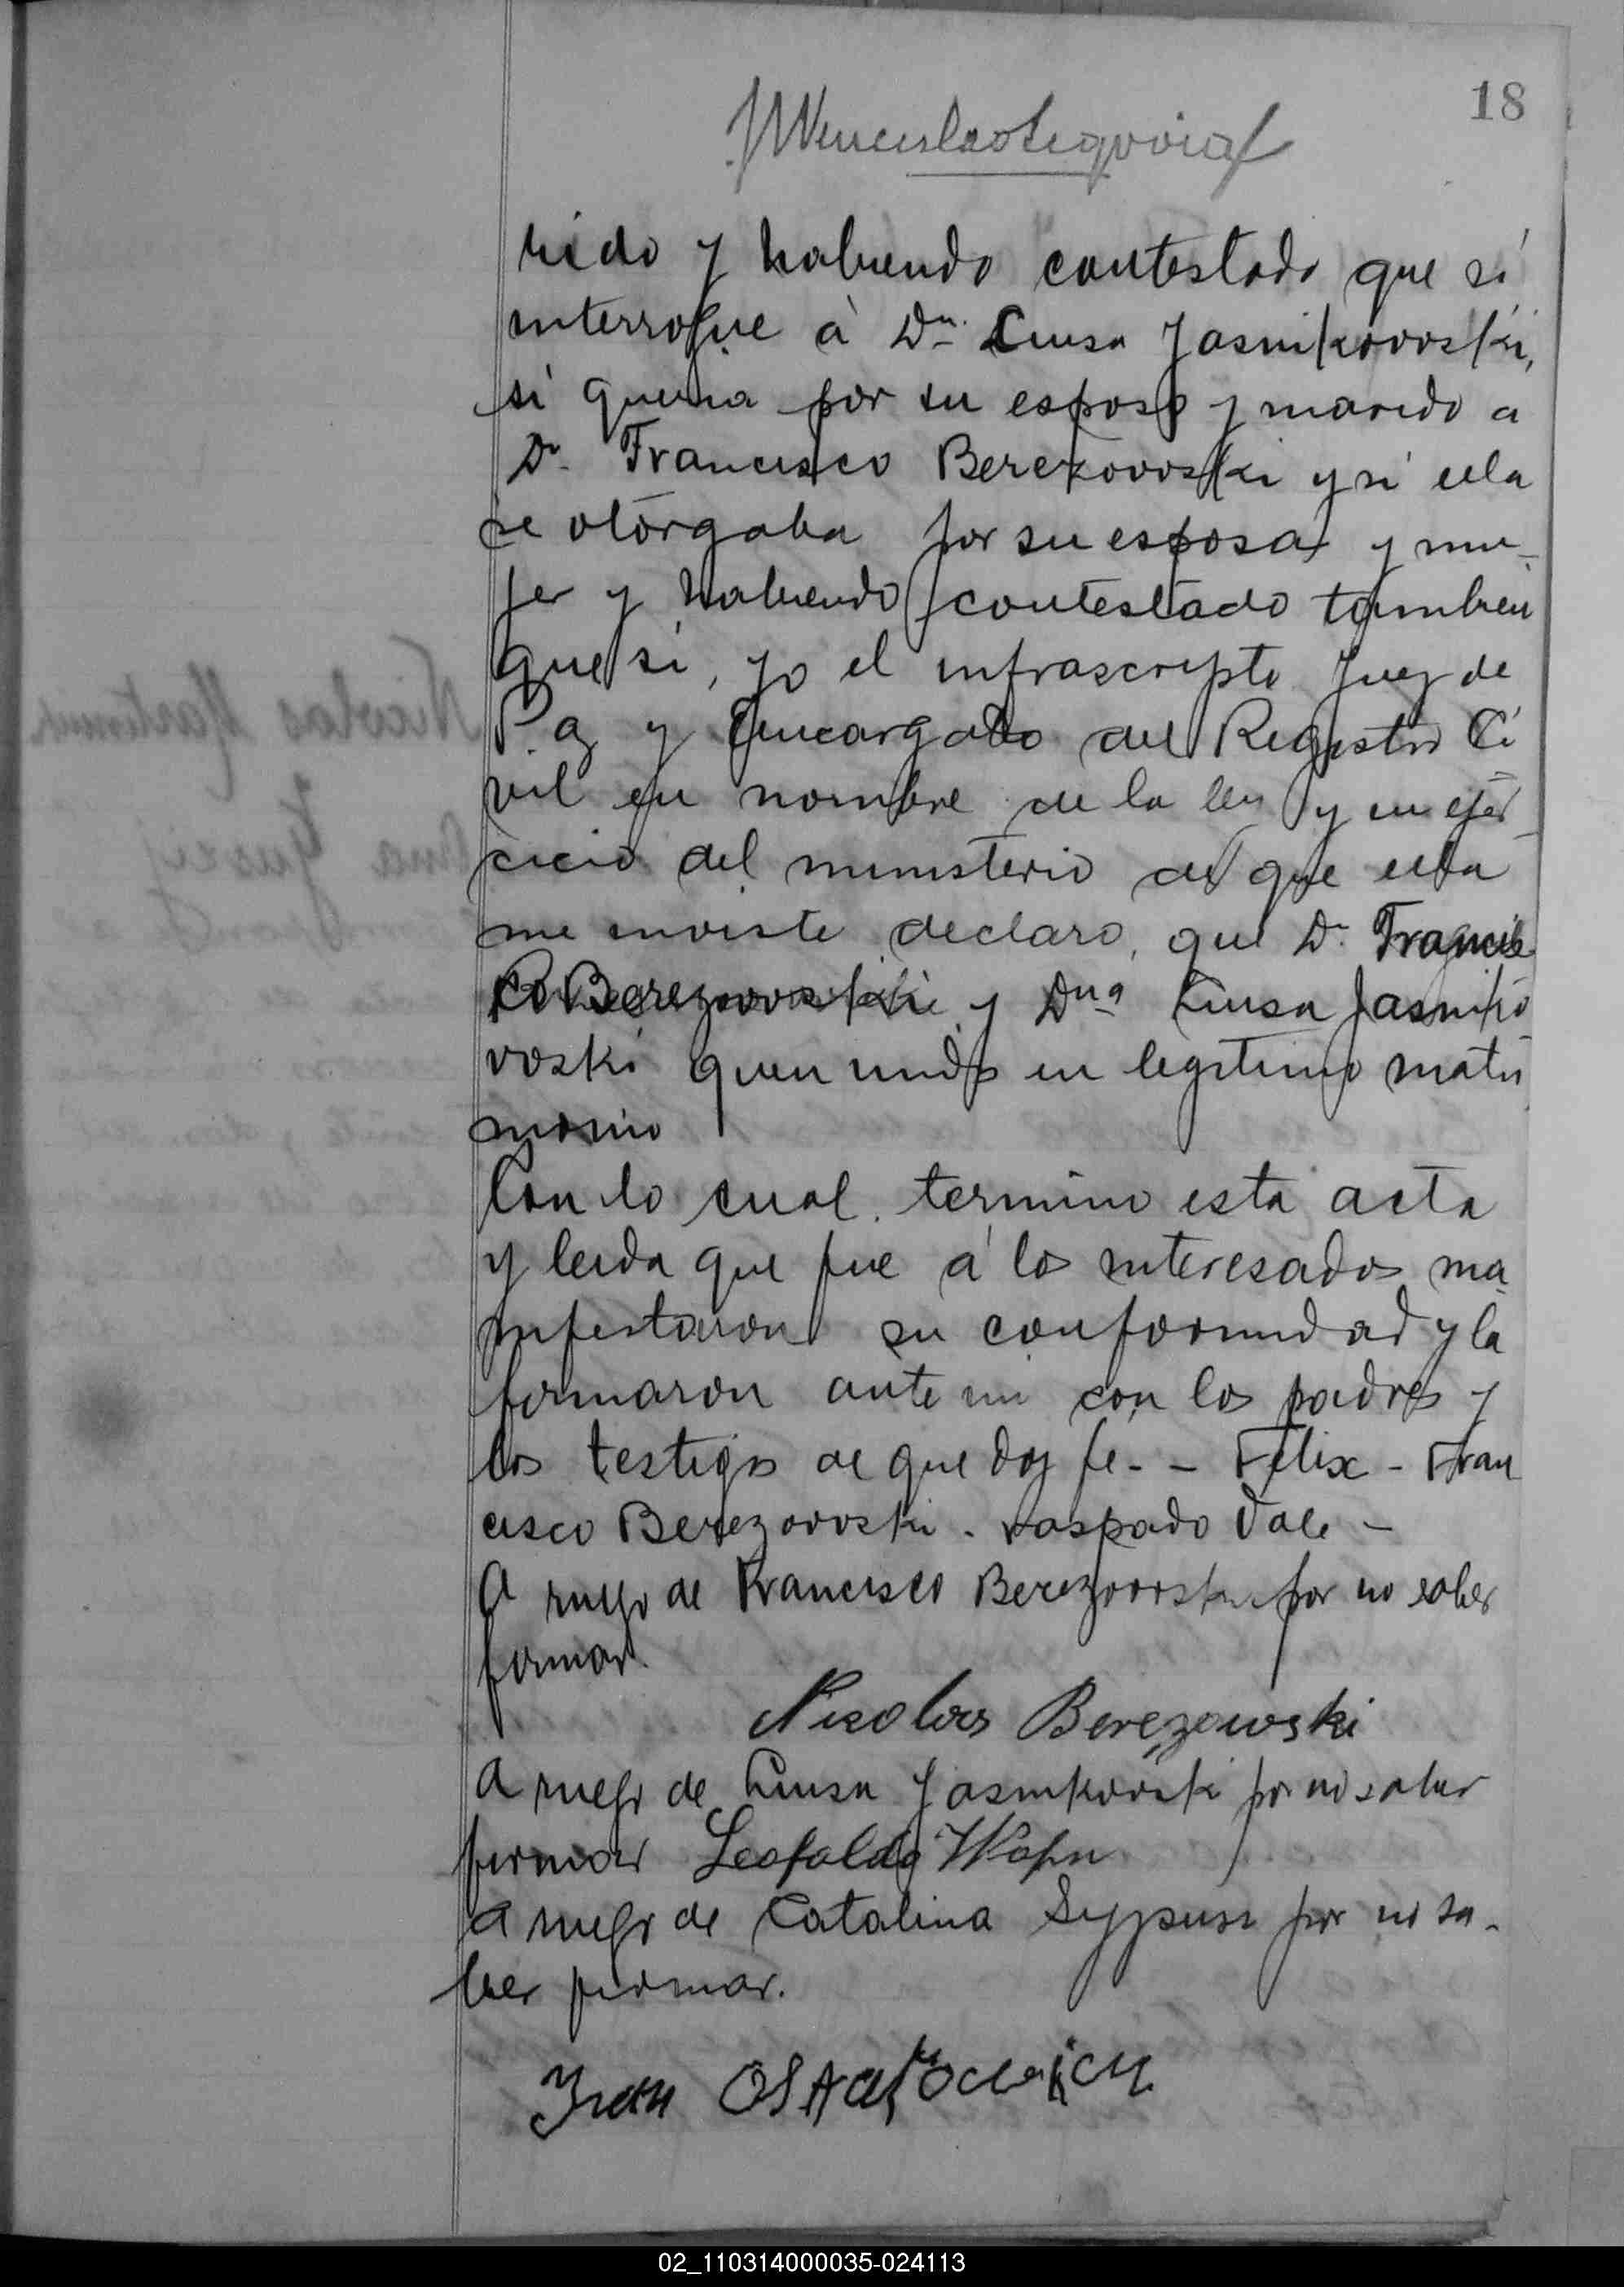 18
rido y habiendo contestado que si
interrogue á Dña. Luisa Jasnikovoski,
si queria por su esposo y marido a
Dn. Francisco Berezovoski y si ella
se otorgaba por su esposa y mu-
jer y habiendo contestado tambien
que si, yo el infrascripto Juez de
Paz y Encargado del Registro Ci
vil en nombre de la ley y en ejer
cicio del ministerio de que ella
me inviste declaro, que Dn. Francis
co Berezovoski y Dna Luisa Jasniko
voski quedan unidos en legitimo matri
monio
Con lo cual termino esta acta
y leida que fue á los interesados ma
nifestaron su conformidad y la
firmaron ante mi con los padres y
los testigos de que doy fe. - Felix - Fran
cisco Berezovoski. raspado Vale -
A ruego de Francisco Berezovoski por no saber
firmar.
Nicolas Berezowski
A ruego de Luisa Jasnikovski por no saber
firmar Leopoldo
A ruego de Catalina por no sa-
ber firmar.
02_110314000035-024113